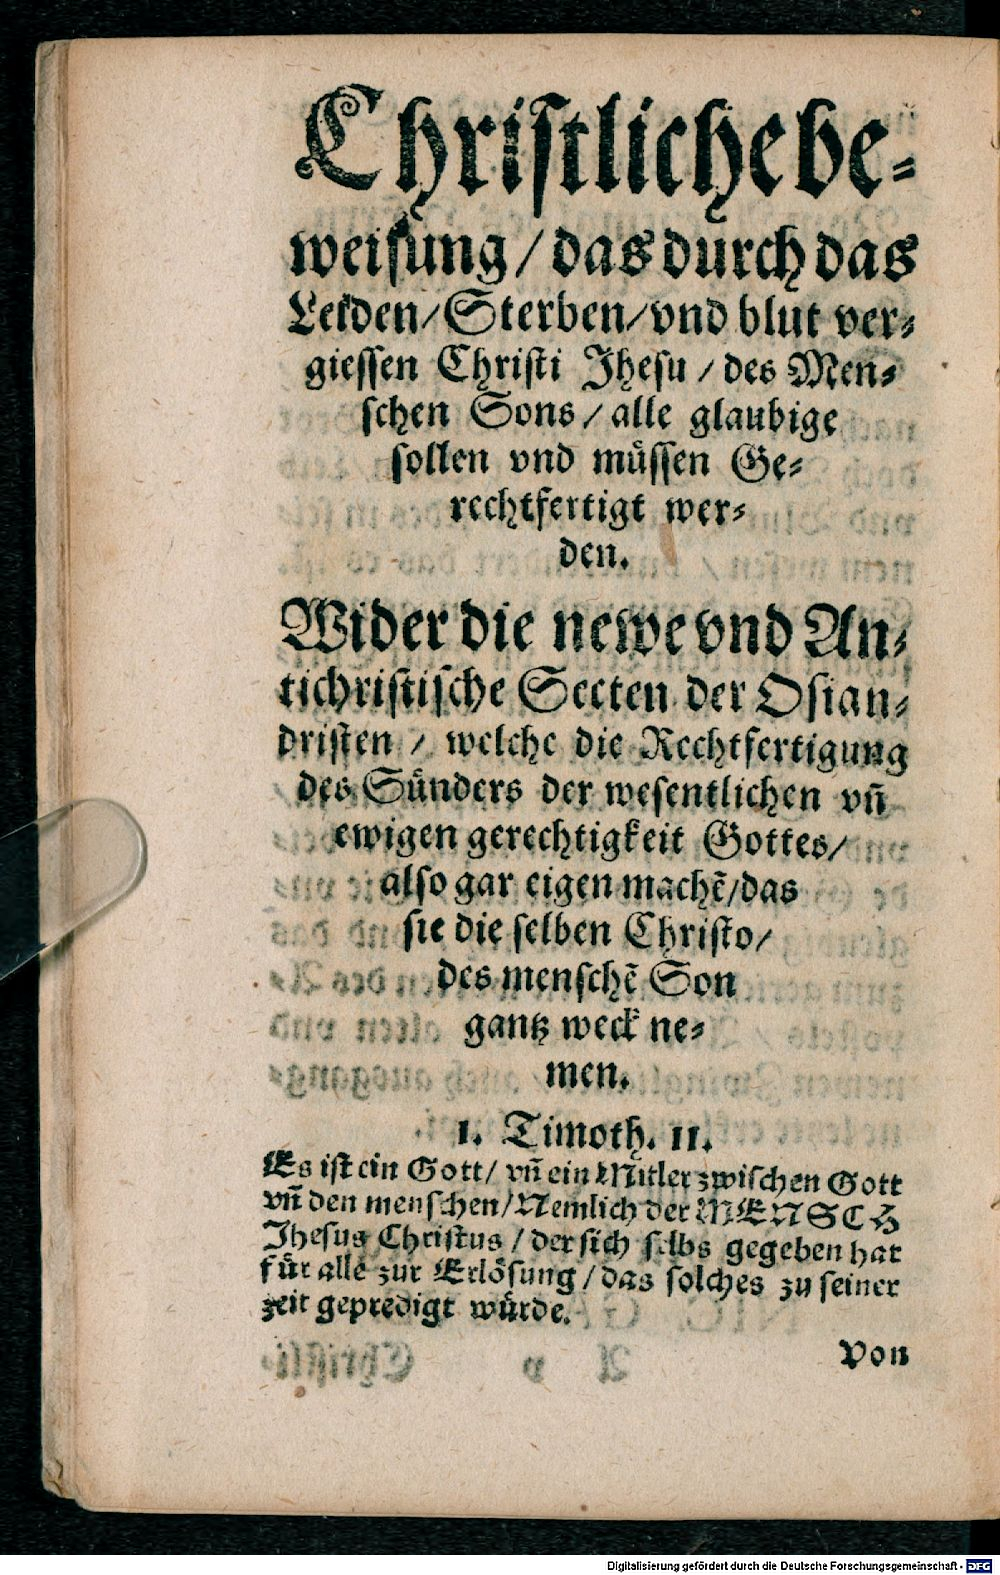 Christliche be-
weisung / das durch das
Leiden / Sterben / vnd blut ver-
giessen Christi Jhesu / des Men-
schen Sons / alle glaubige
sollen vnd müssen Ge-
rechtfertigt wer-
den.
Wider die newe vnd An-
tichristische Secten der Osian-
dristen / welche die Rechtfertigung
des Sünders der wesentlichen vñ
ewigen gerechtigkeit Gottes /
also gar eigen machẽ / das
sie die selben Christo /
des menschẽ Son
gantz weck ne-
men.
1. Timoth. 11.
Es ist ein Gott / vñ ein Mitler zwischen Gott
vñ den menschen / Nemlich der MENSCH
Jhesus Christus / der sich selbs gegeben hat
für alle zur Erlösung / das solches zu seiner
zeit gepredigt würde.
Von
Digitalisierung gefördert durch die Deutsche Forschungsgemeinschaft - DFG